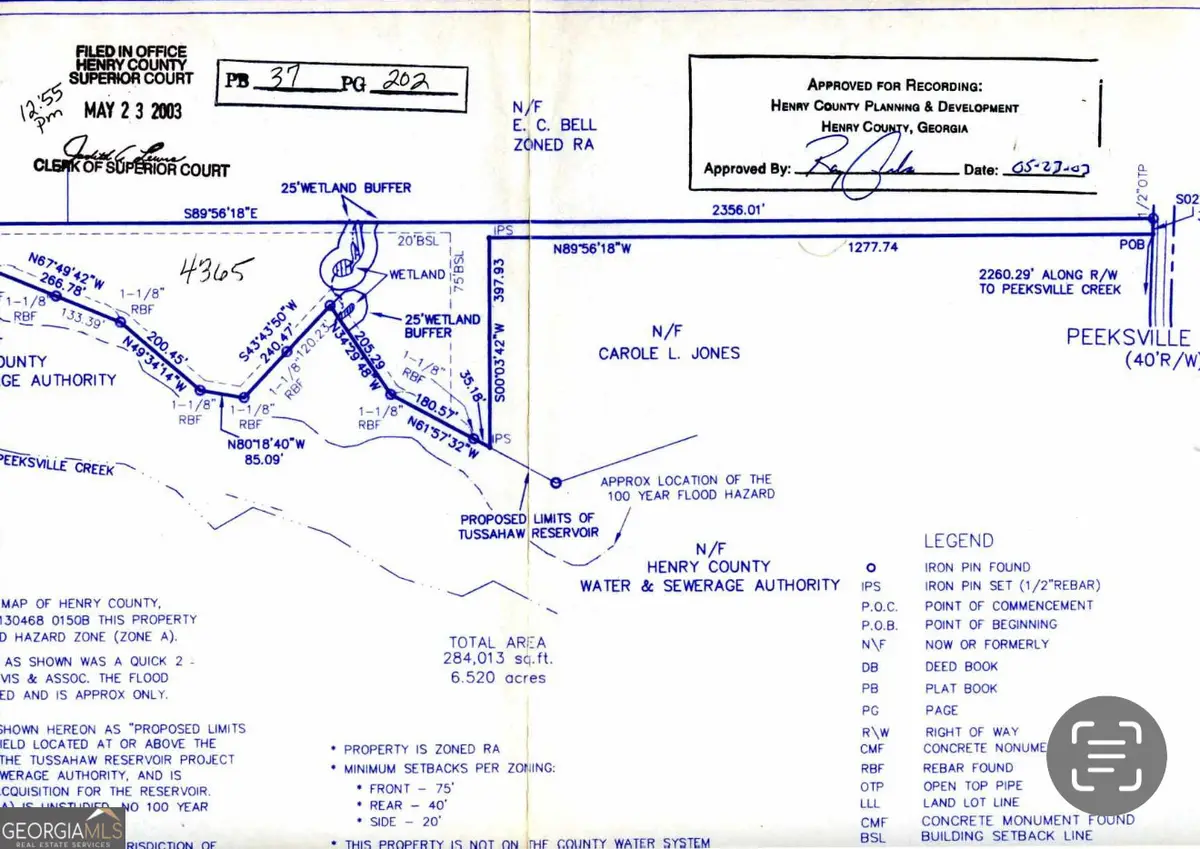 FILED IN OFFICE
HENRY COUNTY
SUPERIOR COURT
12:55
pm
MAY 23 2003
CLERK OF SUPERIOR COURT
PB 37 PG 202
N/F
E. C. BELL
ZONED RA
APPROVED FOR RECORDING:
HENRY COUNTY PLANNING & DEVELOPMENT
HENRY COUNTY, GEORGIA
Approved By: Date: 05-23-03
1/2" OTP
S02
25'WETLAND BUFFER
S89°56'18"E
2356.01'
20'BSL
IPS
N89°56'18"W
1277.74
POB
4365
N67°49'42"W
266.78'
1-1/8"
RBF
133.39'
1-1/8"
RBF
WETLAND
75'BSL
397.93
S00°03'42"W
2260.29' ALONG R/W
TO PEEKSVILLE CREEK
25'WETLAND
BUFFER
PEEKSVILLE
(40'R/W)
N/F
CAROLE L. JONES
S43°43'50"W
240.47'
120.23'
1-1/8"
RBF
205.29
N34°29'48"W
200.45'
N49°34'14"W
1-1/8"
RBF
35.18'
OUNTY
AGE AUTHORITY
1-1/8"
RBF
1-1/8"
RBF
1-1/8"
RBF
180.57'
N61°57'32"W
IPS
N80°18'40"W
85.09'
PEEKSVILLE CREEK
APPROX LOCATION OF THE
100 YEAR FLOOD HAZARD
PROPOSED LIMITS OF
TUSSAHAW RESERVOIR
N/F
HENRY COUNTY
WATER & SEWERAGE AUTHORITY
MAP OF HENRY COUNTY,
130468 0150B THIS PROPERTY
D HAZARD ZONE (ZONE A).
AS SHOWN WAS A QUICK 2
VIS & ASSOC. THE FLOOD
ED AND IS APPROX ONLY.
SHOWN HEREON AS "PROPOSED LIMITS
IELD LOCATED AT OR ABOVE THE
THE TUSSAHAW RESERVOIR PROJECT
WERAGE AUTHORITY, AND IS
CQUISITION FOR THE RESERVOIR.
A) IS UNSTUDIED. NO 100 YEAR
RISDICTION OF
TOTAL AREA
284,013 sq.ft.
6.520 acres
* PROPERTY IS ZONED RA
* MINIMUM SETBACKS PER ZONING:
* FRONT – 75'
* REAR – 40'
* SIDE – 20'
* THIS PROPERTY IS NOT ON THE COUNTY WATER SYSTEM
LEGEND
O IRON PIN FOUND
IPS IRON PIN SET (1/2"REBAR)
P.O.C. POINT OF COMMENCEMENT
P.O.B. POINT OF BEGINNING
N\F NOW OR FORMERLY
DB DEED BOOK
PB PLAT BOOK
PG PAGE
R\W RIGHT OF WAY
CMF CONCRETE NONUME
RBF REBAR FOUND
OTP OPEN TOP PIPE
LLL LAND LOT LINE
CMF CONCRETE MONUMENT FOUND
BSL BUILDING SETBACK LINE
GEORGIAMLS
REAL ESTATE SERVICES